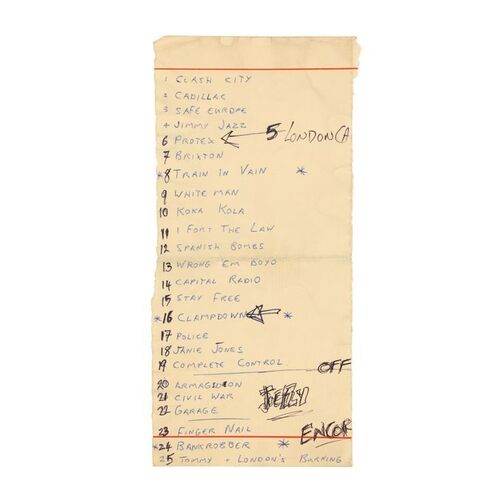 1 CLASH CITY
2 CADILLAC
3 SAFE EUROPE
4 JIMMY JAZZ
6 PROTEX 5 LONDON CA
7 BRIXTON
*8 TRAIN IN VAIN *
9 WHITE MAN
10 KOKA KOLA
11 I FORT THE LAW
12 SPANISH BOMBS
13 WRONG 'EM BOYO
14 CAPITAL RADIO
15 STAY FREE
*16 CLAMPDOWN *
17 POLICE
18 JANIE JONES
19 COMPLETE CONTROL
OFF
20 ARMAGIDION
21 CIVIL WAR
22 GARAGE
23 FINGER NAIL ENCOR
*24 BANKROBBER *
25 TOMMY + LONDON'S BURNING